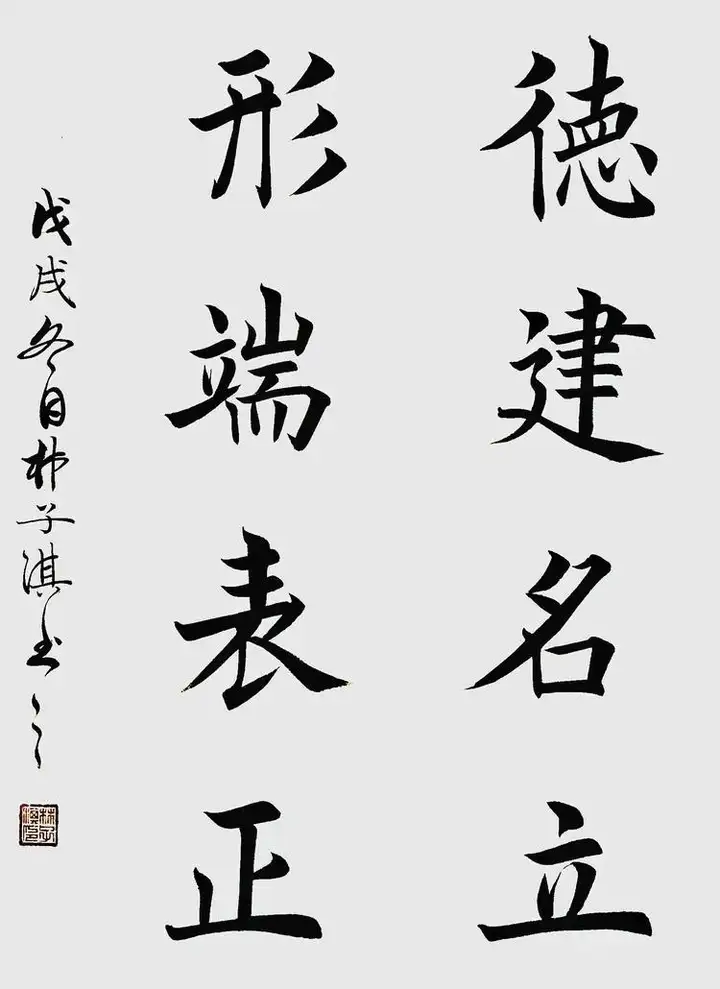 德建名立
形端表正
戊戌冬月林子淇书之
林子淇印